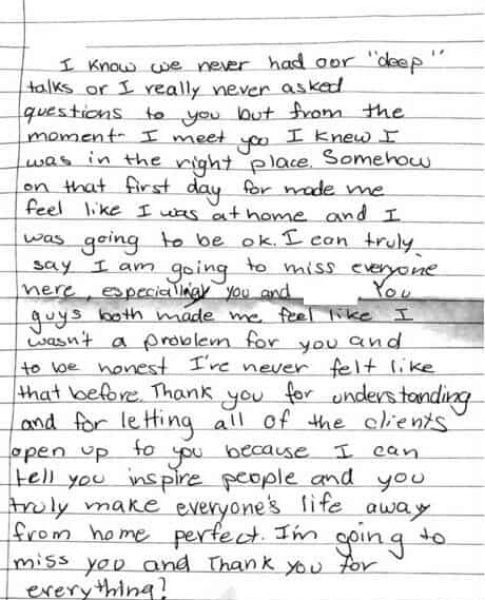 I know we never had our "deep"
talks or I really never asked
questions to you but from the
moment I meet you I knew I
was in the right place. Somehow
on that first day for made me
feel like I was at home and I
was going to be ok. I can truly
say I am going to miss everyone
here, especially you and You
guys both made me feel like I
wasn't a problem for you and
to be honest I've never felt like
that before. Thank you for understanding
and for letting all of the clients
open up to you because I can
tell you inspire people and you
truly make everyone's life away
from home perfect. I'm going to
miss you and Thank you for
everything!